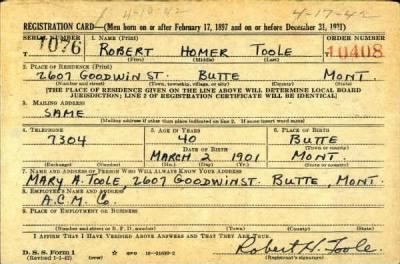 4-17-42
REGISTRATION CARD—(Men born on or after February 17, 1897 and on or before December 31, 1921)
SERIAL NUMBER 1. NAME (Print) ORDER NUMBER
1076 ROBERT HOMER TOOLE 10408
(First) (Middle) (Last)
2. PLACE OF RESIDENCE (Print)
2607 GOODWIN ST. BUTTE MONT.
(Number and street) (Town, township, village, or city) (County) (State)
[THE PLACE OF RESIDENCE GIVEN ON THE LINE ABOVE WILL DETERMINE LOCAL BOARD
JURISDICTION; LINE 2 OF REGISTRATION CERTIFICATE WILL BE IDENTICAL]
3. MAILING ADDRESS
SAME
[Mailing address if other than place indicated on line 2. If same insert word same]
4. TELEPHONE 5. AGE IN YEARS 6. PLACE OF BIRTH
7304 40 BUTTE
DATE OF BIRTH (Town or county)
MARCH 2 1901 MONT.
(Exchange) (Number) (Mo.) (Day) (Yr.) (State or country)
7. NAME AND ADDRESS OF PERSON WHO WILL ALWAYS KNOW YOUR ADDRESS
MARY A. TOOLE, 2607 GOODWIN ST. BUTTE, MONT.
8. EMPLOYER'S NAME AND ADDRESS
A.C.M. Co.
9. PLACE OF EMPLOYMENT OR BUSINESS
(Number and street or R. F. D. number) (Town) (County) (State)
I AFFIRM THAT I HAVE VERIFIED ABOVE ANSWERS AND THAT THEY ARE TRUE.
D. S. S. Form 1 Robert H. Toole
(Revised 1-1-42) (Registrant's signature)